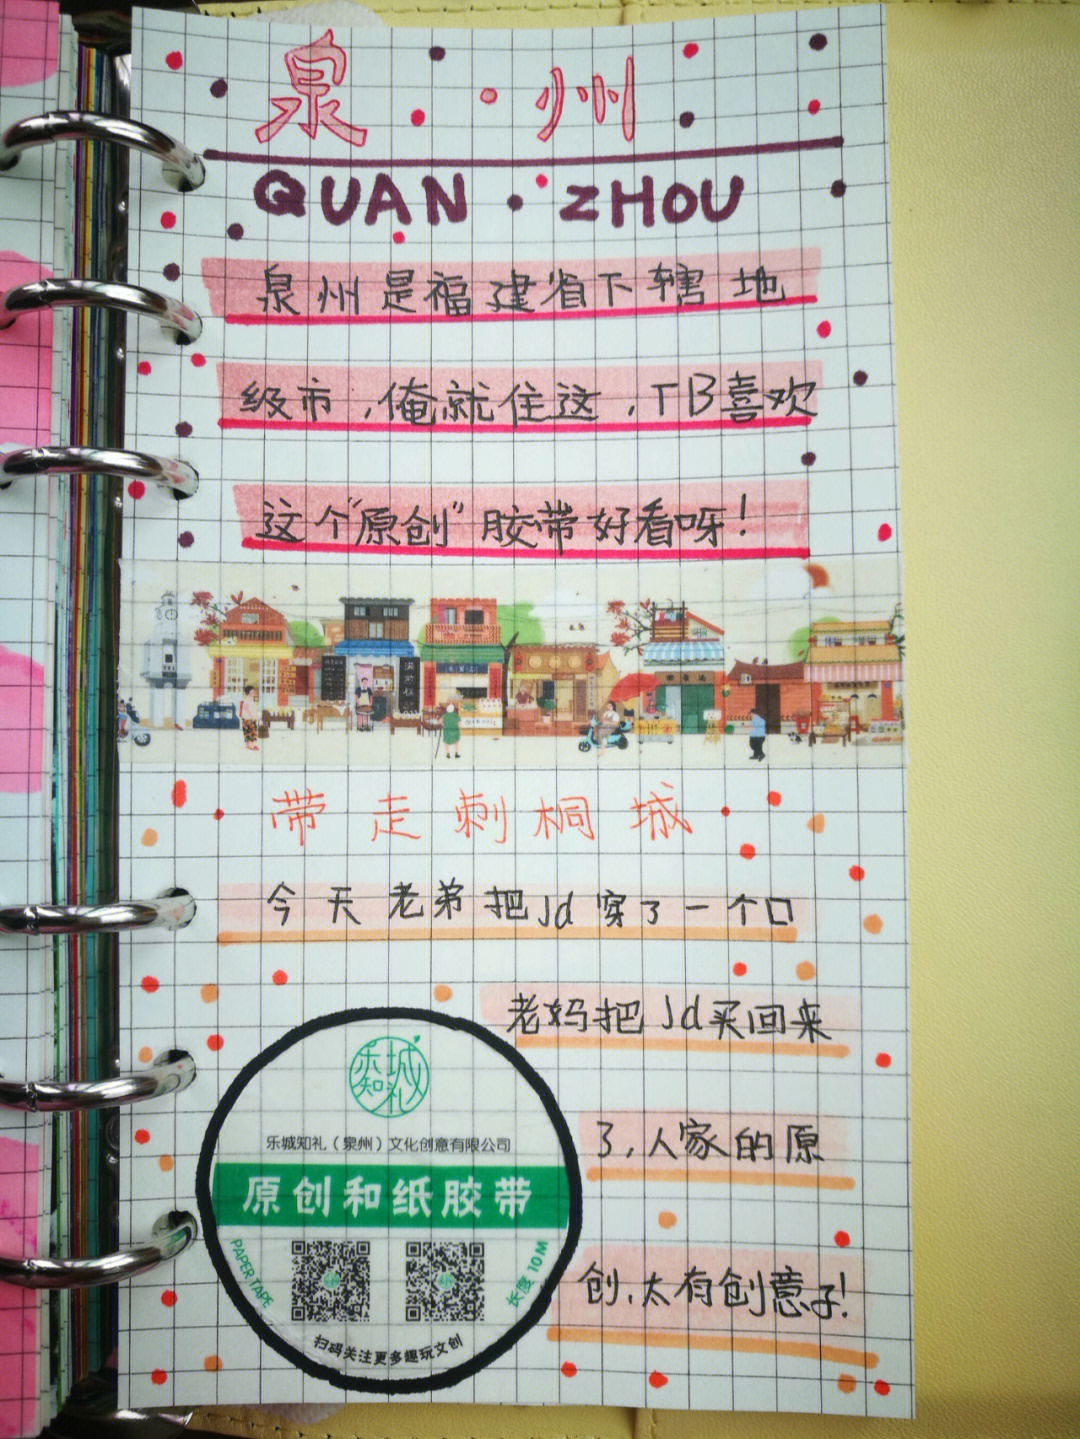 泉·州
QUAN·ZHOU
泉州是福建省下辖地
级市,俺就住这,TB喜欢
这个"原创"胶带好看呀!
带走刺桐城
今天老弟把Jd穿了一个口
老妈把Jd买回来
了,人家的原
创,太有创意子!
乐城知礼
乐城知礼(泉州)文化创意有限公司
原创和纸胶带
PAPER TAPE
长度10M
扫码关注更多趣玩文创